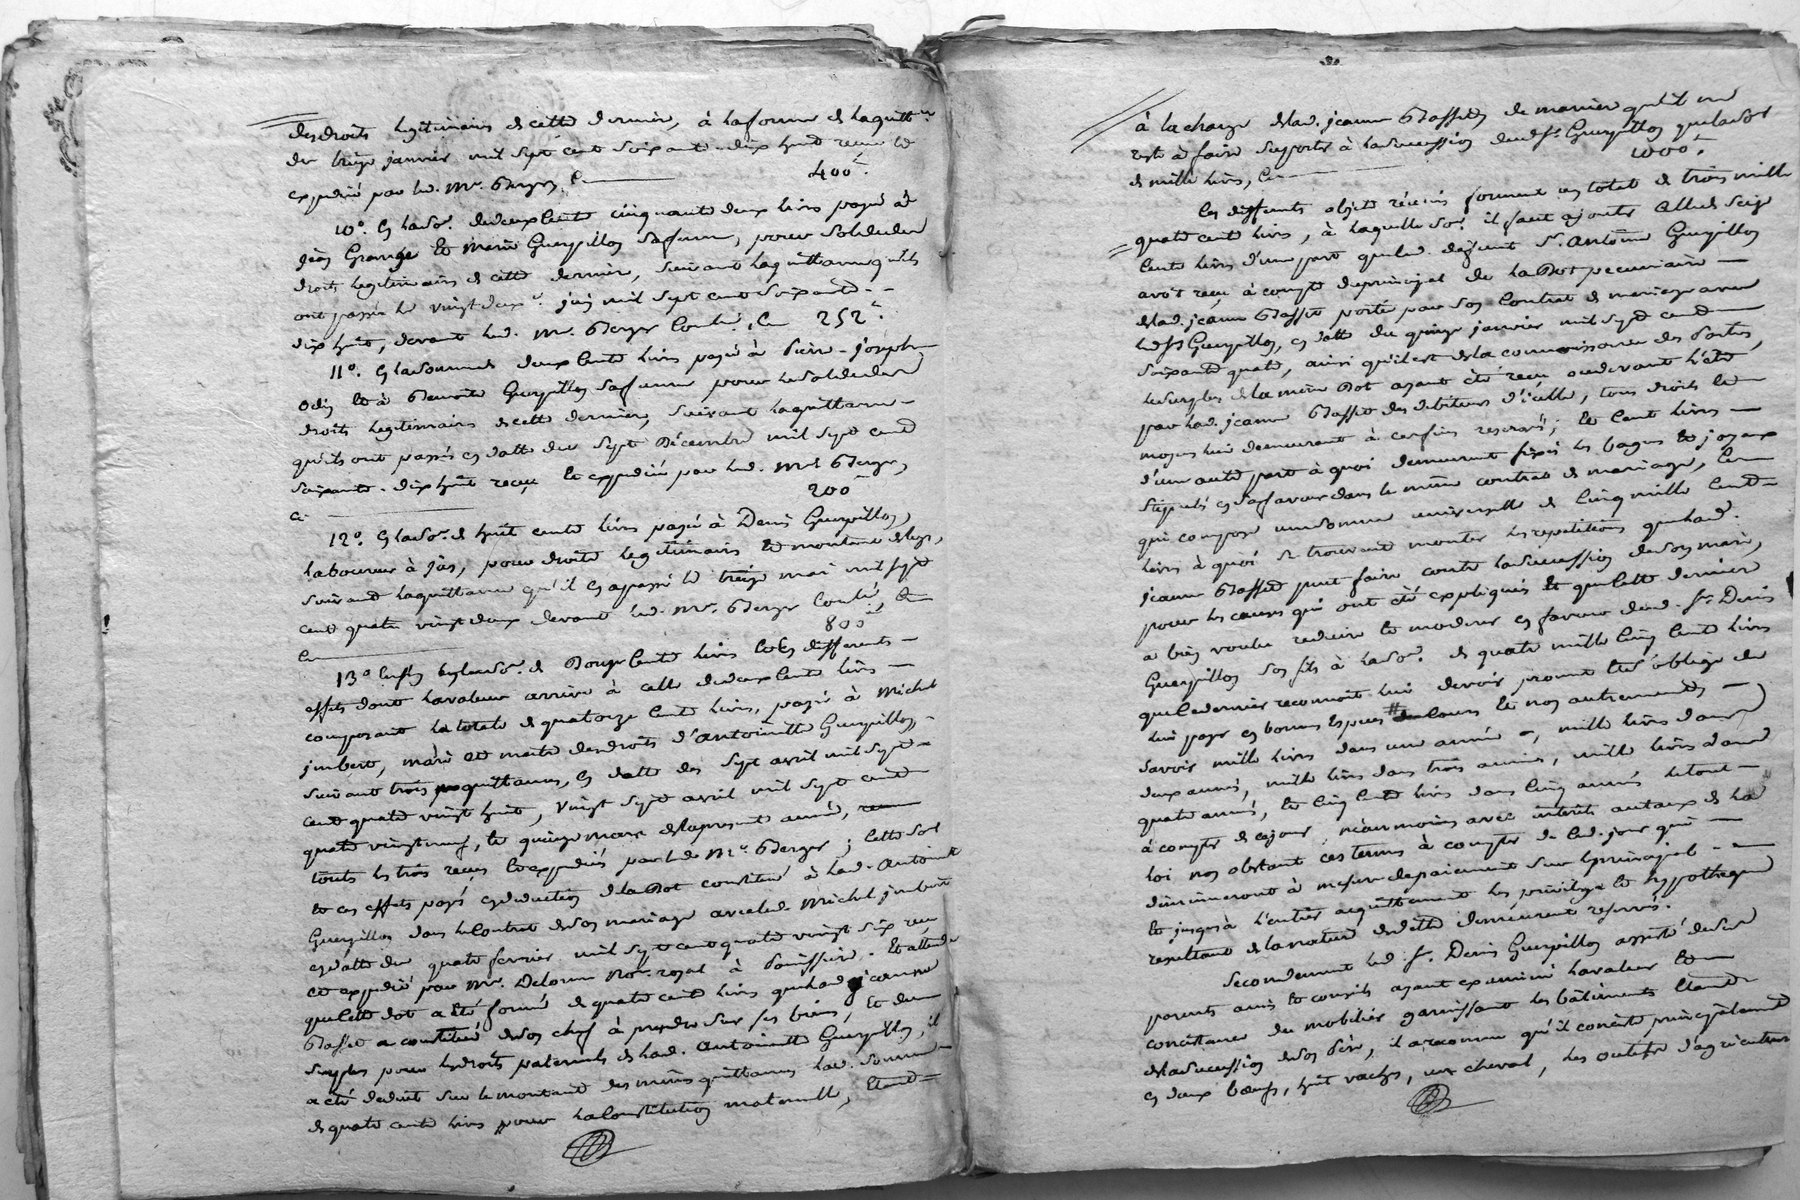 des droits legitimaires de cette derniere, à la forme de la quitt.ce
du treize janvier mil sept cent soixante-dix huit recue et
expedié par led. Mr. Berger, Cy 400#.
10°. En la so.e de deux cents cinquante deux livres payé à
jean Grange et Marie Guerpillon sa femme, pour solde des
droits legitimaires de cette derniere, suivant la quittance qu'ils
ont passée le vingt deux juin mil sept cent soixante-
dix huit, devant led. Mr. Berger Con.re, Cy 252#.
11°. En la somme de deux cents livres payé à Pierre-joseph
odin et à Benoite Guerpillon sa femme pour le solde des
droits legitimaires de cette derniere, suivant la quittance
qu'ils ont passés en datte du sept Décembre mil sept cent
soixante-dix huit reçue et expediée par led. Mr. Berger,
Ci 200#
12°. En la so.e de huit cents livres payé à Denis Guerpillon,
laboureur à jas, pour droits legitimaires et montant de legs,
suivant la quittance qu'il en a passé le treize mai mil sept
cent quatre vingt deux devant led. Mr. Berger Con.re, Cy
800#
13° Enfin en la so.e de Douze cents livres et en differents
effets dont la valeur arrive à celle de deux cents livres
composant la totale de quatorze cents livres, payé à Michel
jmbert, mari et maitre des droits d'antoinette Guerpillon,
suivant trois quittances, en datte des sept avril mil sept
cent quatre vingt huit, vingt sept avril mil sept cent
quatre vingt neuf, et quinze mars de la presente année,
toutes les trois reçues et expediées par led. Mr. Berger; cette so.e
et ces effets payés en deduction de la Dot constitué à lad. Antoinette
Guerpillon dans le Contrat de son mariage avec led. Michel jmbert
en datte du quatre fevrier mil sept cent quatre vingt six reçu
et expedié par Mr. Delorme No.re royal à Panissiere. Et attendu
que cette dot a été formé de quatre cents livres que lad. jeanne
Basset a constitué de son chef à prendre sur ses biens, et du
surplus pour les droits paternels de lad. Antoinette Guerpillon, il
a été deduit sur le montant des mêmes quittances lad. somme
de quatre cents livres pour la Constitution maternelle, Etant
à la charge de lad. jeanne Basset, de maniere qu'il ne
reste à faire supporter à la succession dud. Sr. Guerpillon que la so.e
de mille livres, Cy 1000#.
Ces differents objets réunis forment un total de trois mille
quatre cents livres, à laquelle so.e il faut ajouter Celle de seize
cents livres d'une part que led. defunt Sr. Antoine Guerpillon
avoit reçu à compte du principal de la Dot pecuniaire
de lad. jeanne Basset portée par son Contrat de mariage avec
led. Sr. Guerpillon, en datte du quinze janvier mil sept cent
soixante quatre, ainsi qu'il est de la connoissance des Parties,
le surplus de la même Dot ayant été reçu ou devant l'être
par lad. jeanne Basset des debiteurs d'icelle, tous droits et
moyens lui demeurant à ces fins reservés; et Cent livres
d'une autre part à quoi demeurent fixés les bagues et joyaux
stipulés en sa faveur dans le même contrat de mariage, Ce
qui compose une somme universelle de Cinq mille Cent
livres à quoi se trouvent monter les repetitions que lad.
jeanne Basset peut faire contre la succession de son mari,
pour les causes qui ont été expliquées Et que cette derniere
a bien voulu reduire et moderer en faveur dud. Sr. Denis
Guerpillon son fils à la so.e de quatre mille Cinq Cents livres
que ce dernier reconnoit lui devoir promet et s'oblige de
lui payer en bonnes Especes # de Cours et non autrement
Savoir mille livres dans une année, mille livres dans
deux années, mille livres dans trois années, mille livres dans
quatre années, et Cinq Cents livres dans Cinq années le tout
à compter de ce jour, néanmoins avec intérêts au taux de la
loi non obstant ces termes à compter de ced. jour qui
diminueront à mesure de paiement sur le principal
et jusqu'à l'entier acquittement les privilege et hypotheque
resultant de la nature de dette demeurent reservés.
Secondement led. Sr. Denis Guerpillon assisté de ses
parents amis et conseils ayant examiné la valeur et
consistance du mobilier garnissant les bâtiments Etant
de la succession de son Pere, il a reconnu qu'il consiste principalement
en deux bœufs, huit vaches, un cheval, les outils d'agriculture